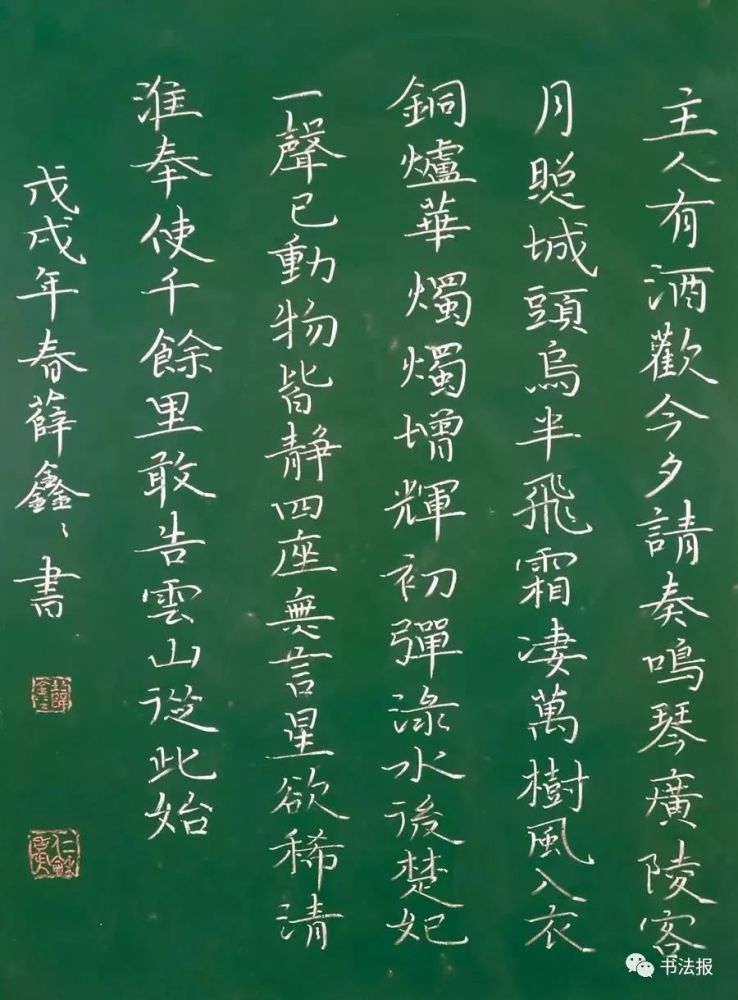 主人有酒歡今夕請奏鳴琴廣陵客
月照城頭烏半飛霜凄萬樹風入衣
銅爐華燭燭增輝初彈淥水後楚妃
一聲已動物皆靜四座無言星欲稀清
淮奉使千餘里敢告雲山從此始
戊戌年春薛鑫〻書
书法报